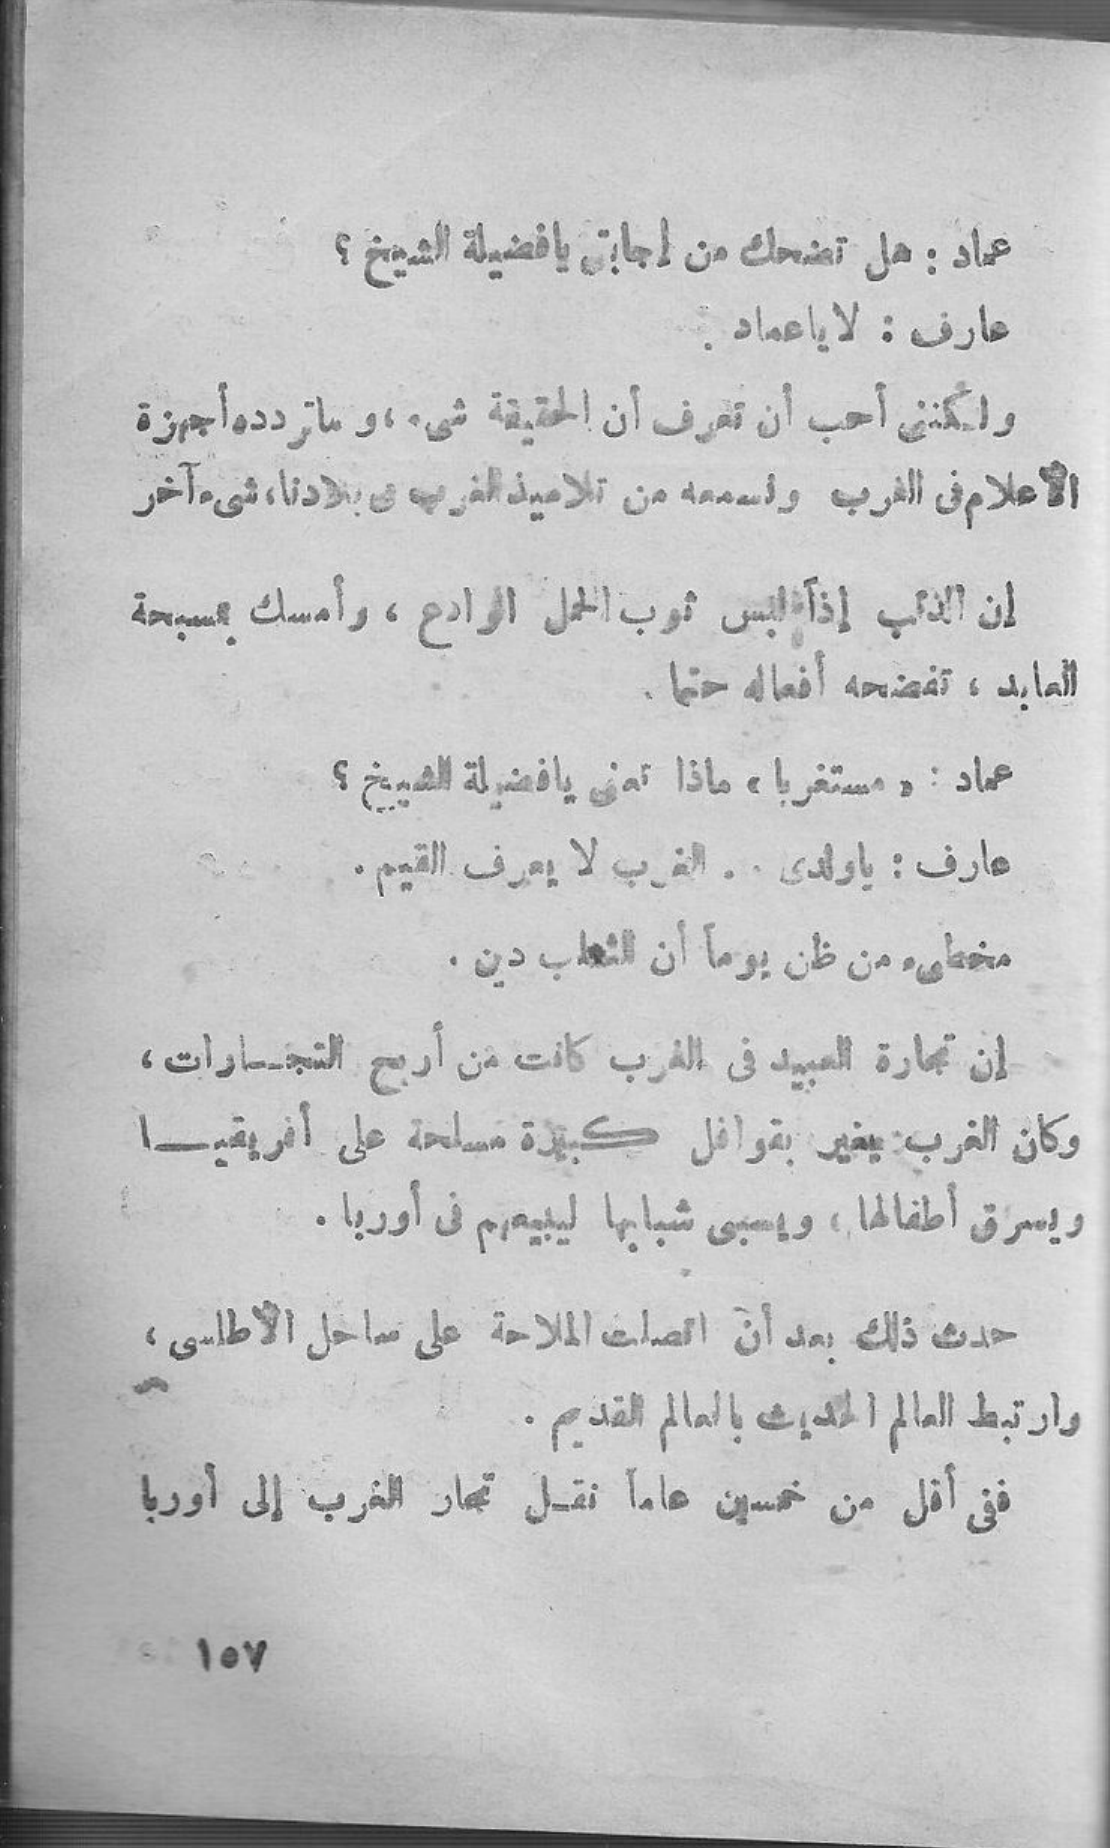 عماد : هل تضحك من إجابتى يافضيلة الشيخ ؟
عارف : لا ياعماد .
ولكننى أحب أن تعرف أن الحقيقة شىء ، وماتردده أجهزة
الأعلام فى الغرب ونسمعه من تلاميذ الغرب فى بلادنا ، شىء آخر
إن الذئب إذا لبس ثوب الحمل الوادع ، وأمسك بمسبحة
العابد ، تفضحه أفعاله حتما .
عماد : « مستغربا » ماذا تعنى يافضيلة الشيخ ؟
عارف : ياولدى . . الغرب لا يعرف القيم .
مخطىء من ظن يوماً أن للثعلب دين .
إن تجارة العبيد فى الغرب كانت من أربح التجـارات ،
وكان الغرب يغير بقوافل كبيرة مسلحة على أفريقيــا
ويسرق أطفالها ، ويسبى شبابها ليبيعهم فى أوربا .
حدث ذلك بعد أن اتصلت الملاحة على ساحل الأطلسى ،
وارتبط العالم الحديث بالعالم القديم .
ففى أقل من خمسين عاماً نقـل تجار الغرب إلى أوربا
١٥٧